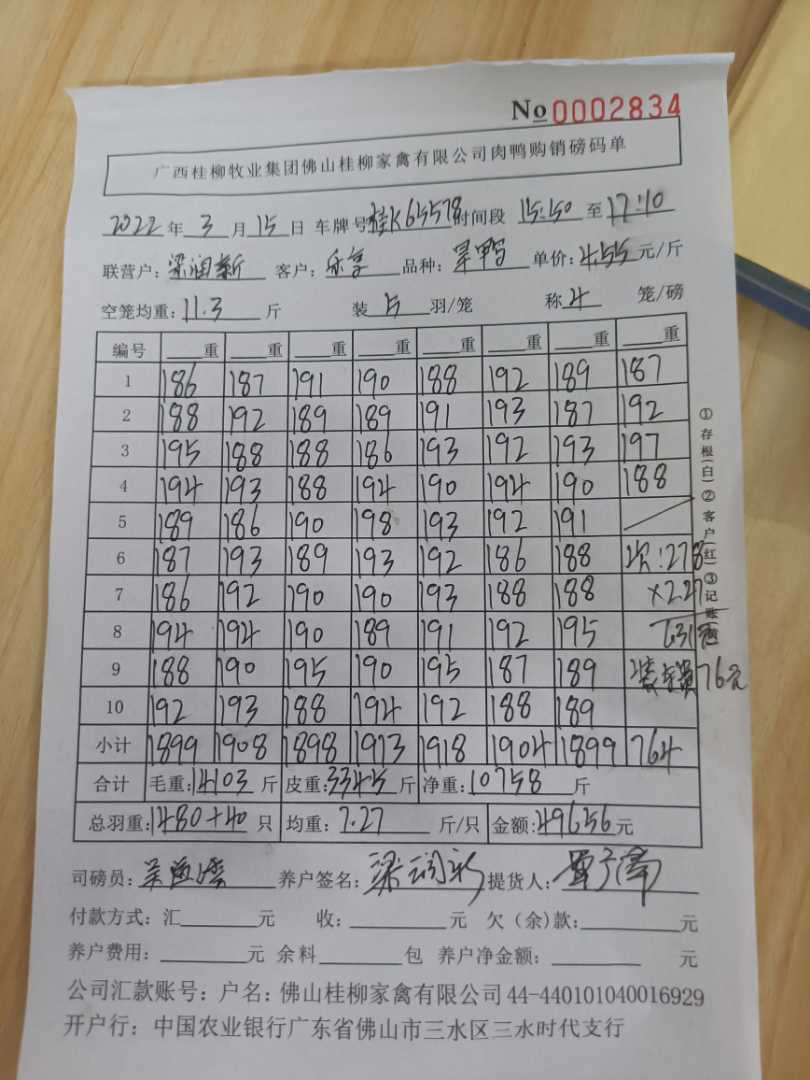 No 0002834
广西桂柳牧业集团佛山桂柳家禽有限公司肉鸭购销磅码单
2022年3月15日 车牌号桂K65578时间段 15:50 至17:10
联营户：梁润新 客户： 品种： 单价：455元/斤
空笼均重：11.3 斤 装 5 羽/笼 称 4 笼/磅
编号 重 重 重 重 重 重 重 重
1 186 187 191 190 188 192 189 187
2 188 192 189 189 191 193 187 192
3 195 188 188 186 193 192 193 197
4 194 193 188 194 190 194 190 188
5 189 186 190 198 193 192 191
6 187 193 189 193 192 186 188 :278
7 186 192 190 190 193 188 188 ×2.27
8 194 194 190 189 191 192 195 631
9 188 190 195 190 195 187 189 76元
10 192 193 188 194 192 188 189
小计 1899 1908 1898 1913 1918 1904 1899 764
合计 毛重：14103 斤 皮重：3345 斤 净重：10758 斤
总羽重：1480+40 只 均重：7.27 斤/只 金额：49656元
司磅员： 养户签名：梁润新 提货人：
付款方式：汇 元 收： 元 欠（余）款： 元
养户费用： 元 余料 包 养户净金额： 元
公司汇款账号：户名：佛山桂柳家禽有限公司 44-440101040016929
开户行：中国农业银行广东省佛山市三水区三水时代支行
①存根（白）②客户（红）③记账